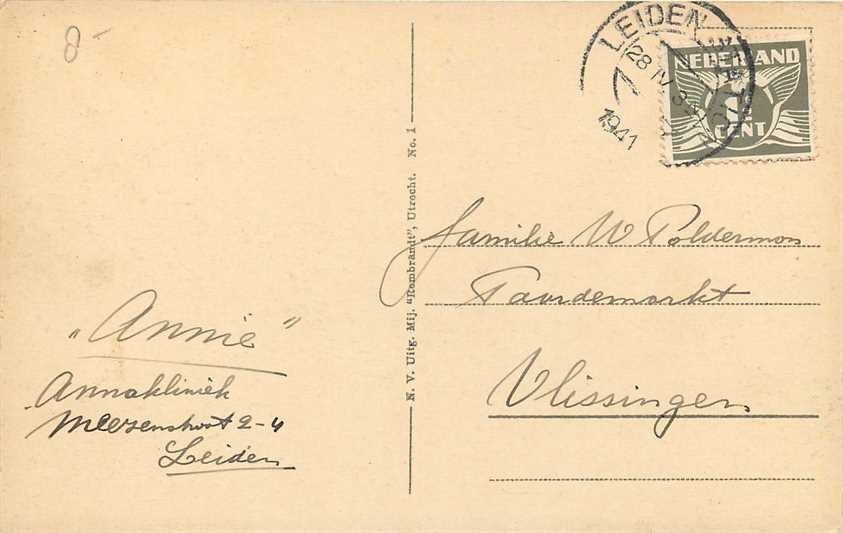 8-
LEIDEN
28 IV
1941
NEDERLAND
1½
CENT
N. V. Uitg. Mij. "Rembrandt", Utrecht. No. 1
familie W Polderman
Paardemarkt
Vlissingen
"Annie"
Annakliniek
2-4
Leiden